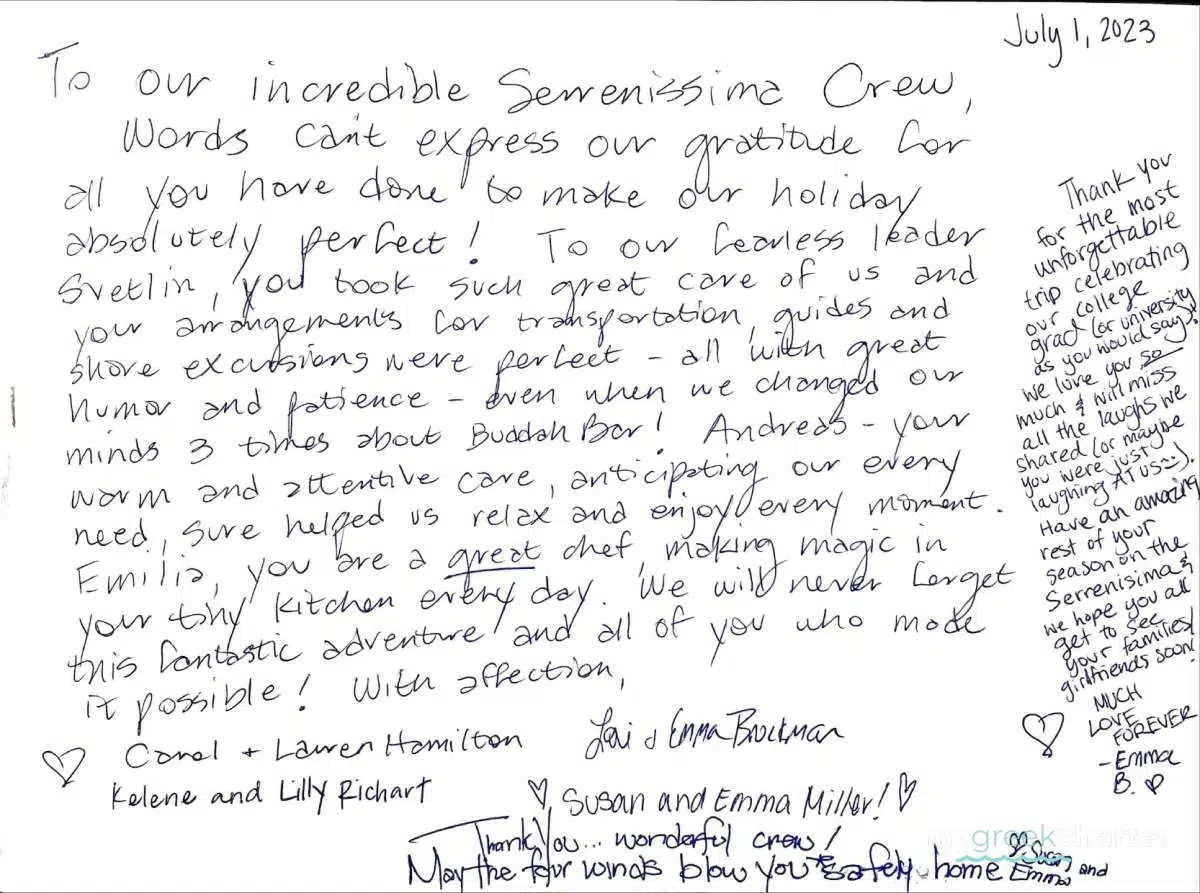 July 1, 2023
To our incredible Serrenissima Crew,
Words can't express our gratitude for
all you have done to make our holiday
absolutely perfect! To our fearless leader
Svetlin, you took such great care of us and
your arrangements for transportation, guides and
shore excursions were perfect - all with great
humor and patience - even when we changed our
minds 3 times about Buddah Bar! Andreas - your
warm and attentive care, anticipating our every
need, sure helped us relax and enjoy every moment.
Emilia, you are a great chef, making magic in
your tiny kitchen every day. We will never forget
this fantastic adventure and all of you who made
it possible! With affection,
♡ Carol + Lauren Hamilton
Lori & Emma Brockman
Kelene and Lilly Richart
♡ Susan and Emma Miller! ♡
Thank You... wonderful crew!
May the four winds blow you safely home
♡ Susan and
Emma
Thank you
for the most
unforgettable
trip celebrating
our college
grad (or university
as you would say)!
We love you so
much & will miss
all the laughs we
shared (or maybe
you were just
laughing AT US :)).
Have an amazing
rest of your
season on the
Serrenisima &
we hope you all
get to see
your families/
girlfriends soon!
♡ MUCH
LOVE
FOREVER
- Emma
B. ♡
my greek charter